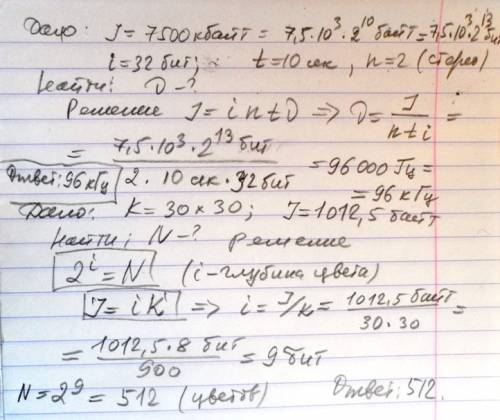 Дано: J = 7500 кбайт = 7,5·10³·2¹⁰ байт = 7,5·10³·2¹³ бит
i = 32 бит; t = 10 сек, n = 2 (стерео)
Найти: D - ?
Решение J = i n t D => D = J / n t i =
= 7,5·10³·2¹³ бит / 2·10 сек·32 бит = 96 000 Гц =
= 96 кГц
Ответ: 96 кГц
Дано: K = 30 × 30; J = 1012,5 байт
Найти: N - ? Решение
2ⁱ = N (i - глубина цвета)
J = i K => i = J/K = 1012,5 байт / 30·30 =
= 1012,5·8 бит / 900 = 9 бит
N = 2⁹ = 512 (цветов) Ответ: 512.